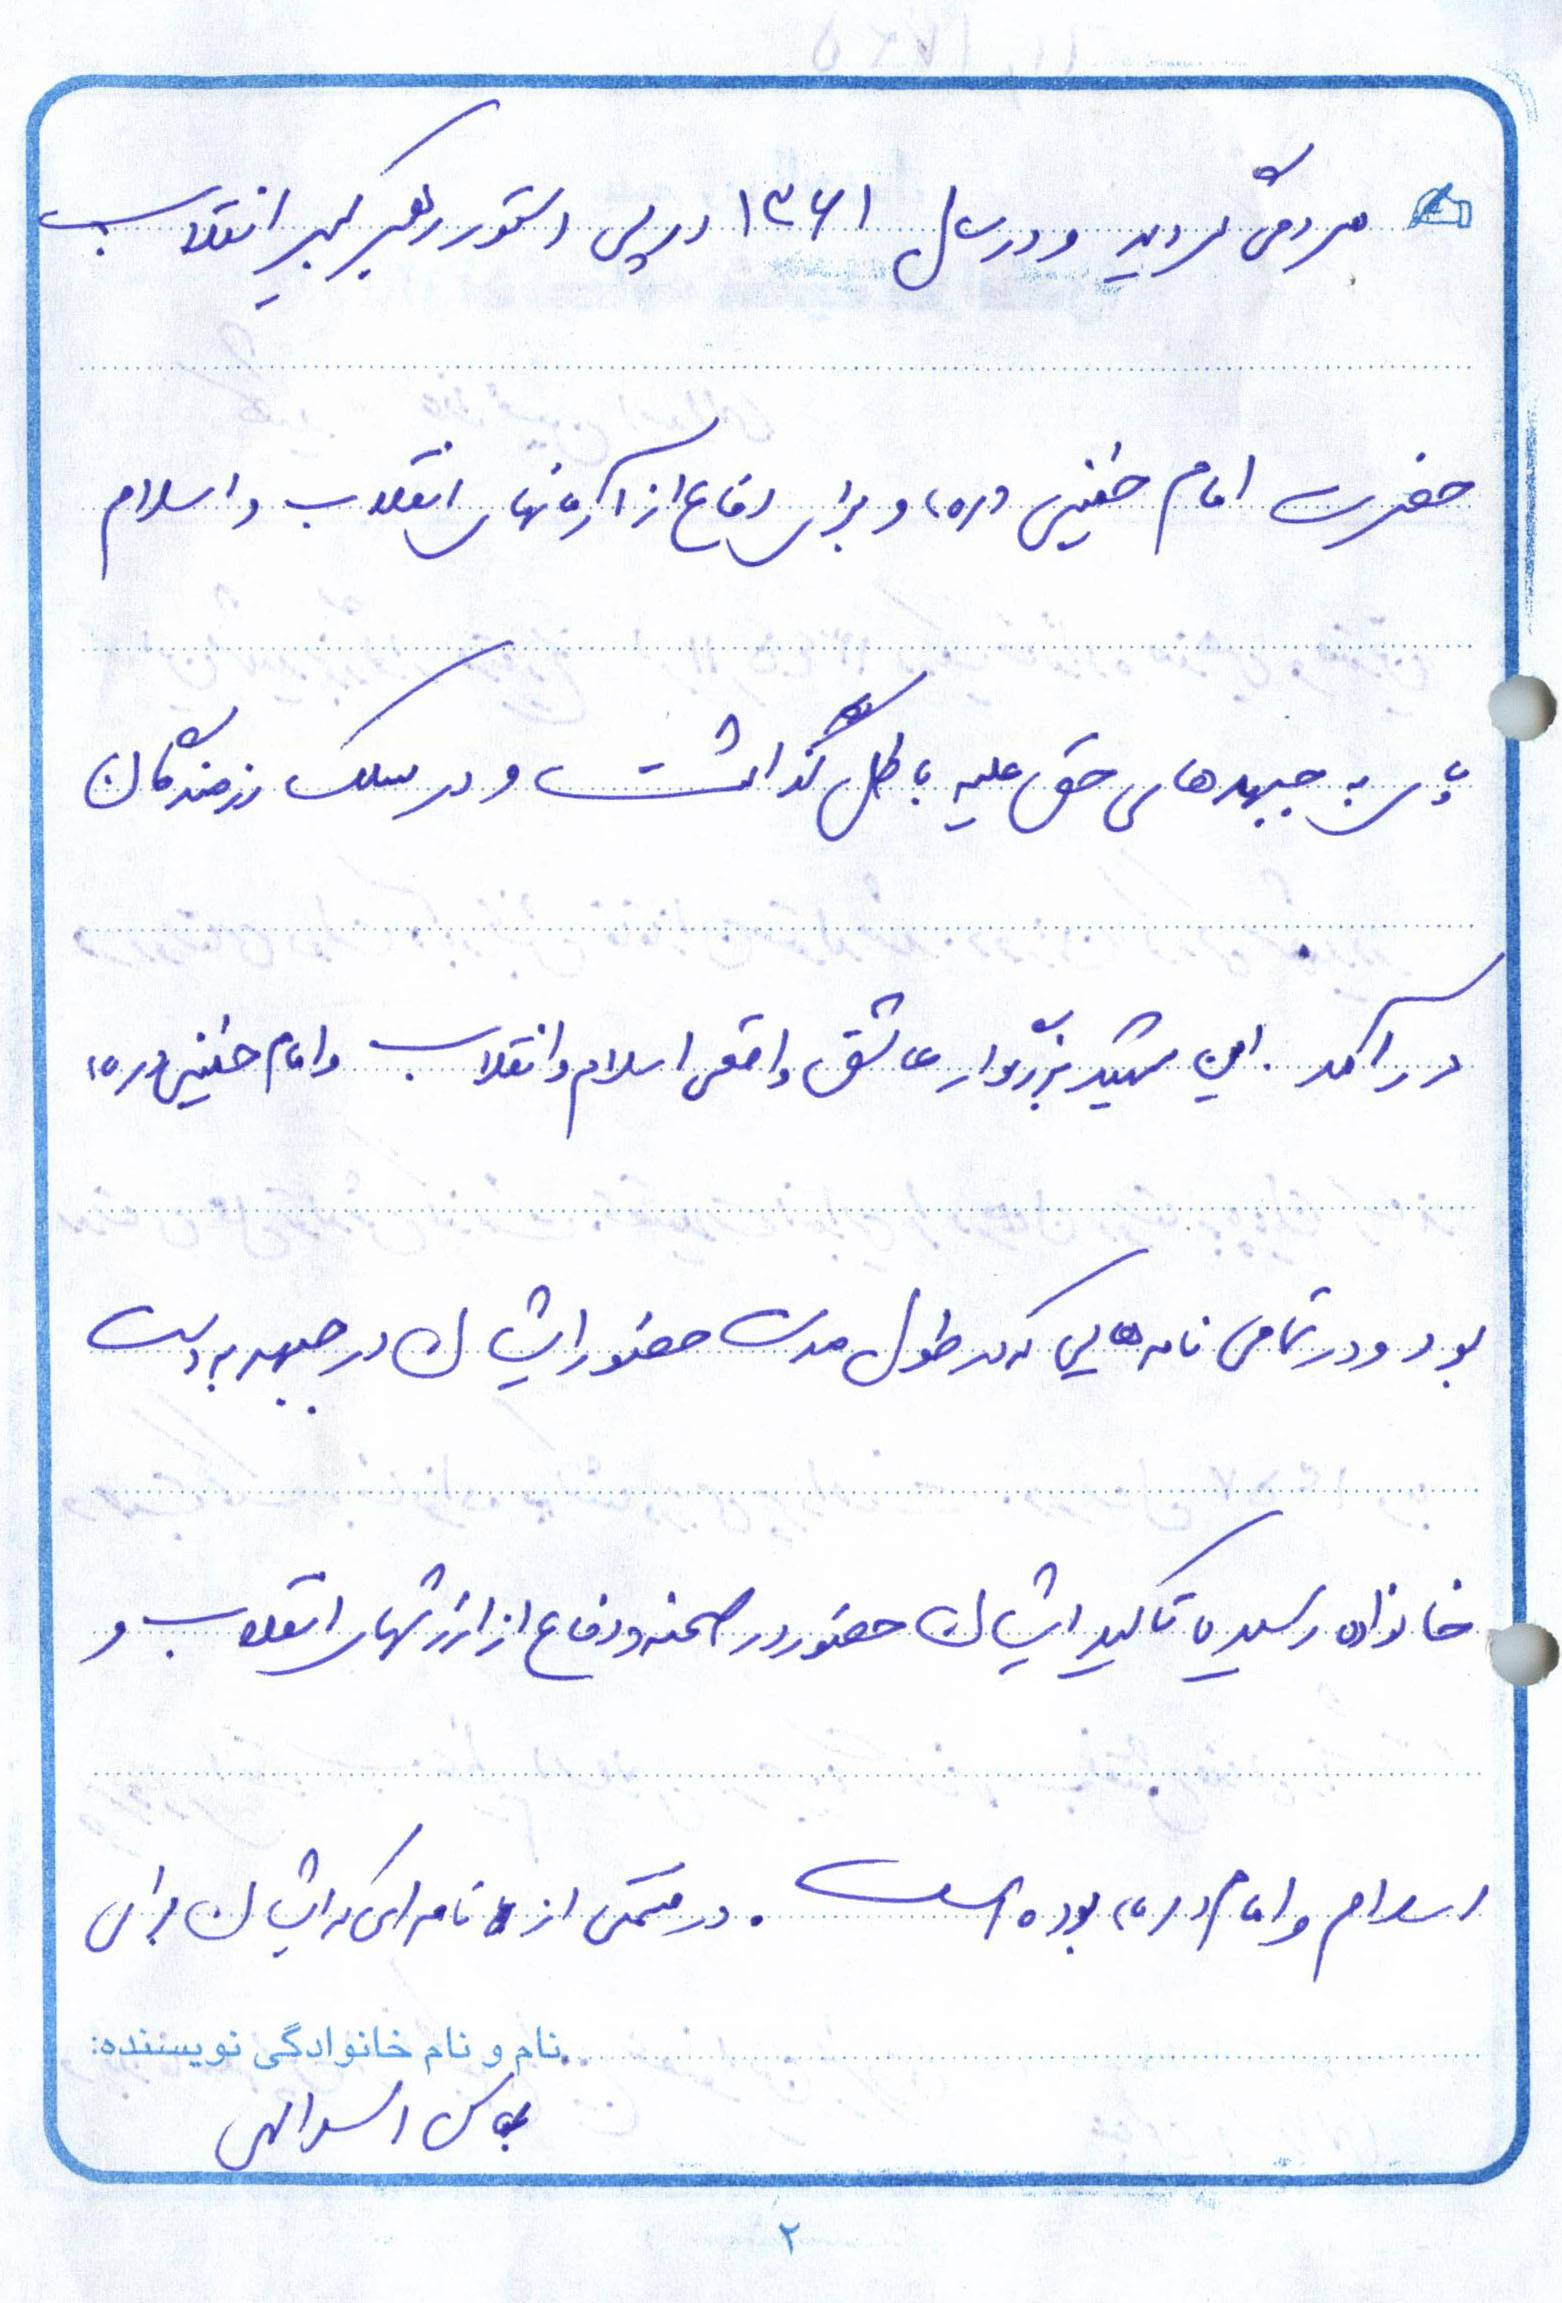 مردمی گردید و در سال ۱۳۶۱ در پی دستور رهبر کبیر انقلاب
حضرت امام خمینی (ره) و برای دفاع از آرمانهای انقلاب و اسلام
پای به جبهه‌های حق علیه باطل گذاشت و در سلک رزمندگان
درآمد. این شهید بزرگوار عاشق واقعی اسلام و انقلاب و امام خمینی (ره)
بود و در تمامی نامه‌هایی که در طول مدت حضور ایشان در جبهه به دست
خانواده رسیده تاکید ایشان حضور در صحنه و دفاع از ارزشهای انقلاب و
اسلام و امام (ره) بوده است. در متنی از نامه‌ای که ایشان برای
نام و نام خانوادگی نویسنده:
اسدالهی
۲